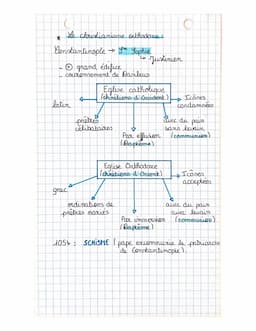 Le christianisme orthodoxe :
Constantinople → Ste Sophie
→ Justinien
- ⊕ grand édifice
- couronnement de
Eglise catholique
(chrétiens d'Occident)
→ Icônes
condamnées
latin
prêtres
célibataires
Par effusion
(Baptème)
avec du pain
sans levain
(communion)
Eglise Orthodoxe
(chrétiens d'Orient)
→ Icônes
acceptées
grec
ordinations de
prêtres mariés
Par immersion
(Baptème)
avec du pain
avec levain
(communion)
1054 : SCHISME (pape excommunie le patriarche
de Constantinople).